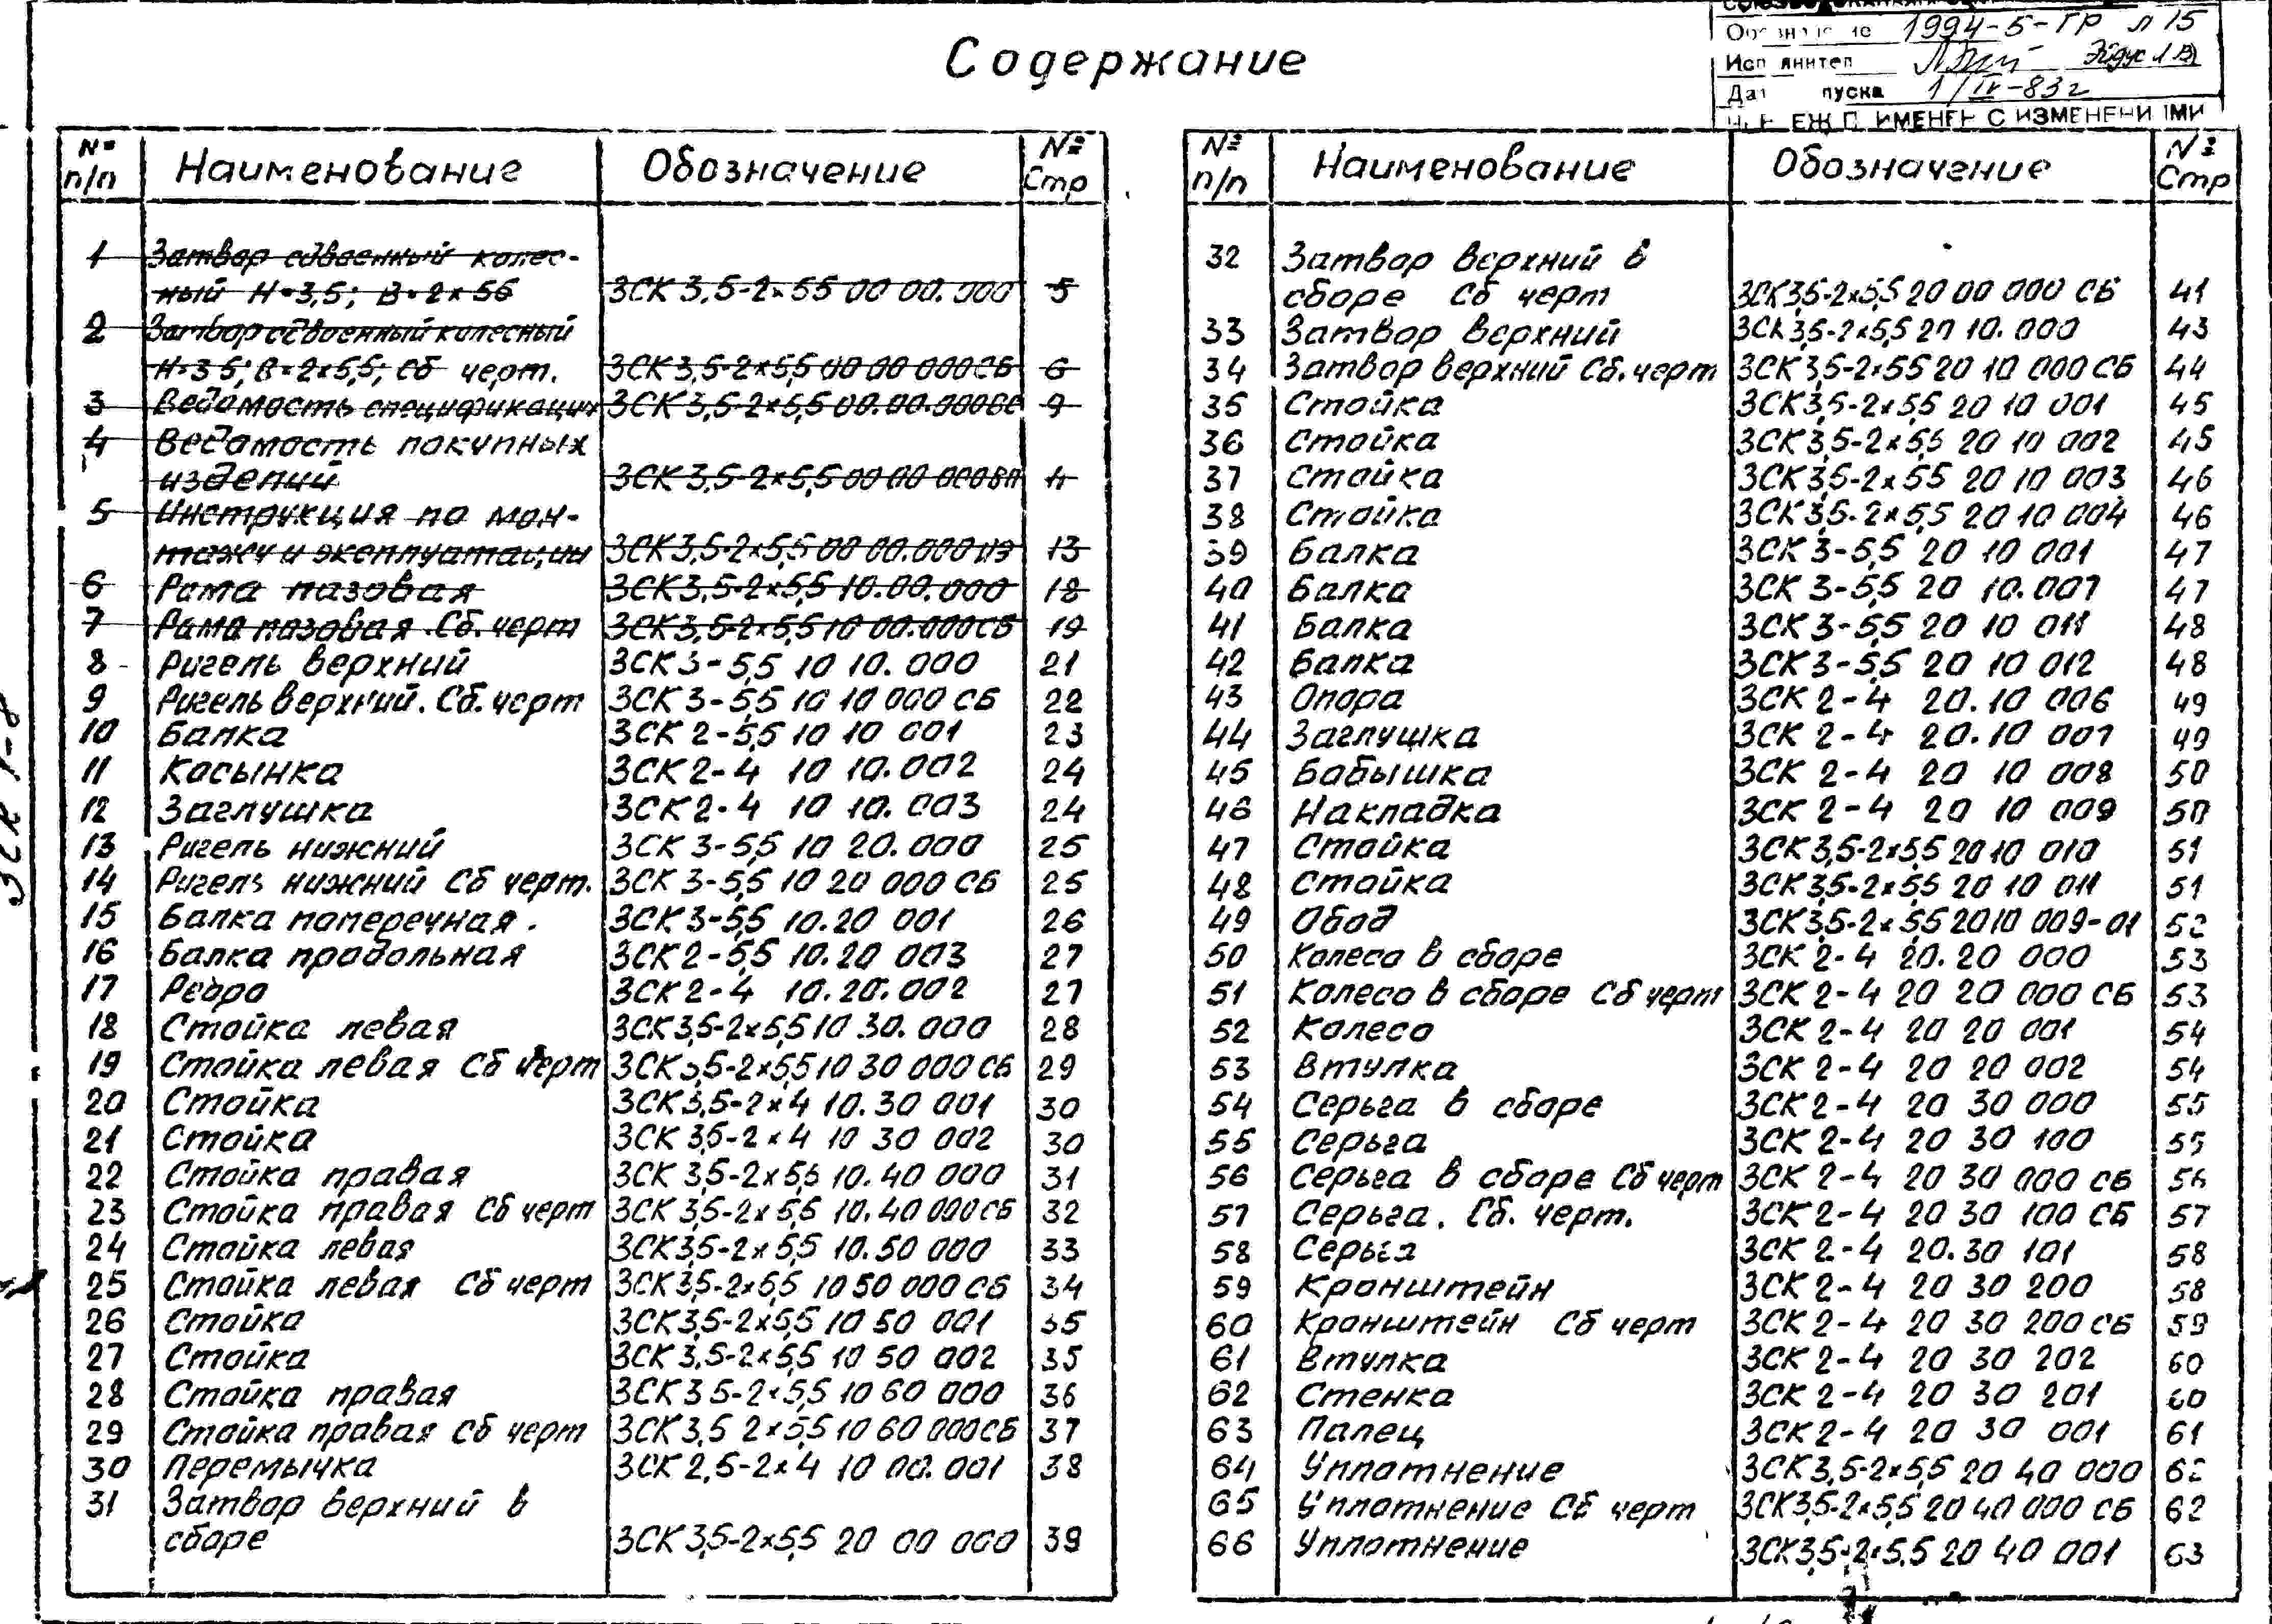 Содержание
1994-5-ГР л 15
1/IV-83г
№ п/п Наименование Обозначение № Стр
1 Затвор сдвоенный колес-
ный Н=3,5; В=2×55 ЗСК 3,5-2×55 00 00.000 5
2 Затвор сдвоенный колесный
Н=3 5; В=2×5,5; Сб черт. ЗСК 3,5-2×5,5 00 00 000СБ 6
3 Ведомость спецификации ЗСК 3,5-2×5,5 00.00.000ВС 9
4 Ведомость покупных
изделий ЗСК 3,5-2×5,5 00 00 000ВП 11
5 Инструкция по мон-
тажу и эксплуатации ЗСК 3,5-2×5,5 00 00.000 ИЭ 13
6 Рама пазовая ЗСК 3,5-2×5,5 10.00.000 18
7 Рама пазовая. Сб. черт ЗСК 3,5-2×5,5 10 00.000СБ 19
8 Ригель верхний ЗСК 3-5,5 10 10.000 21
9 Ригель верхний. Сб. черт ЗСК 3-5,5 10 10 000 СБ 22
10 Балка ЗСК 2-5,5 10 10 001 23
11 Косынка ЗСК 2-4 10 10.002 24
12 Заглушка ЗСК 2-4 10 10.003 24
13 Ригель нижний ЗСК 3-5,5 10 20.000 25
14 Ригель нижний Сб черт. ЗСК 3-5,5 10 20 000 СБ 25
15 Балка поперечная. ЗСК 3-5,5 10.20 001 26
16 Балка продольная ЗСК 2-5,5 10.20 003 27
17 Ребро ЗСК 2-4 10.20.002 27
18 Стойка левая ЗСК 3,5-2×5,5 10 30.000 28
19 Стойка левая Сб черт ЗСК 3,5-2×5,5 10 30 000 СБ 29
20 Стойка ЗСК 3,5-2×4 10.30 001 30
21 Стойка ЗСК 3,5-2×4 10 30 002 30
22 Стойка правая ЗСК 3,5-2×5,5 10.40 000 31
23 Стойка правая Сб черт ЗСК 3,5-2×5,5 10.40 000 СБ 32
24 Стойка левая ЗСК 3,5-2×5,5 10.50 000 33
25 Стойка левая Сб черт ЗСК 3,5-2×5,5 10 50 000 СБ 34
26 Стойка ЗСК 3,5-2×5,5 10 50 001 35
27 Стойка ЗСК 3,5-2×5,5 10 50 002 35
28 Стойка правая ЗСК 3 5-2×5,5 10 60 000 36
29 Стойка правая Сб черт ЗСК 3,5 2×5,5 10 60 000 СБ 37
30 Перемычка ЗСК 2,5-2×4 10 00.001 38
31 Затвор верхний в
сборе ЗСК 3,5-2×5,5 20 00 000 39
№ п/п Наименование Обозначение № Стр
32 Затвор верхний в
сборе Сб черт ЗСК 3,5-2×5,5 20 00 000 СБ 41
33 Затвор верхний ЗСК 3,5-2×5,5 20 10.000 43
34 Затвор верхний Сб. черт ЗСК 3,5-2×55 20 10 000 СБ 44
35 Стойка ЗСК 3,5-2×5,5 20 10 001 45
36 Стойка ЗСК 3,5-2×5,5 20 10 002 45
37 Стойка ЗСК 3,5-2×55 20 10 003 46
38 Стойка ЗСК 3,5-2×5,5 20 10 004 46
39 Балка ЗСК 3-5,5 20 10 001 47
40 Балка ЗСК 3-5,5 20 10.007 47
41 Балка ЗСК 3-5,5 20 10 011 48
42 Балка ЗСК 3-5,5 20 10 012 48
43 Опора ЗСК 2-4 20.10 006 49
44 Заглушка ЗСК 2-4 20.10 007 49
45 Бобышка ЗСК 2-4 20 10 008 50
46 Накладка ЗСК 2-4 20 10 009 50
47 Стойка ЗСК 3,5-2×5,5 20 10 010 51
48 Стойка ЗСК 3,5-2×5,5 20 10 011 51
49 Обод ЗСК 3,5-2×5,5 20 10 009-01 52
50 Колесо в сборе ЗСК 2-4 20.20 000 53
51 Колесо в сборе Сб черт ЗСК 2-4 20 20 000 СБ 53
52 Колесо ЗСК 2-4 20 20 001 54
53 Втулка ЗСК 2-4 20 20 002 54
54 Серьга в сборе ЗСК 2-4 20 30 000 55
55 Серьга ЗСК 2-4 20 30 100 55
56 Серьга в сборе Сб черт ЗСК 2-4 20 30 000 СБ 56
57 Серьга. Сб. черт. ЗСК 2-4 20 30 100 СБ 57
58 Серьга ЗСК 2-4 20.30 101 58
59 Кронштейн ЗСК 2-4 20 30 200 58
60 Кронштейн Сб черт ЗСК 2-4 20 30 200 СБ 59
61 Втулка ЗСК 2-4 20 30 202 60
62 Стенка ЗСК 2-4 20 30 201 60
63 Палец ЗСК 2-4 20 30 001 61
64 Уплотнение ЗСК 3,5-2×5,5 20 40 000 62
65 Уплотнение Сб черт ЗСК 3,5-2×5,5 20 40 000 СБ 62
66 Уплотнение ЗСК 3,5-2×5,5 20 40 001 63